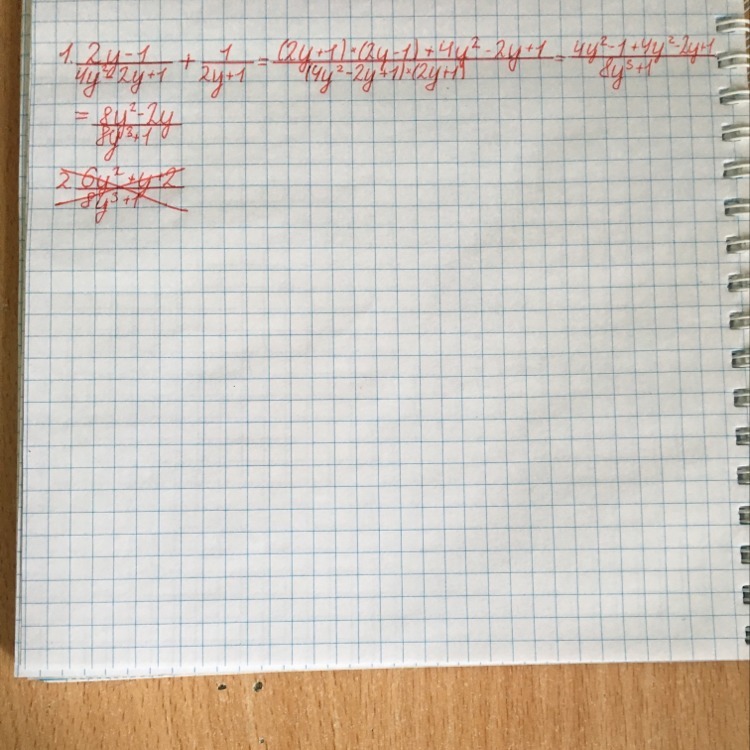 1. (2y-1)/(4y²-2y+1) + 1/(2y+1) = ((2y+1)·(2y-1)+4y²-2y+1)/((4y²-2y+1)·(2y+1)) = (4y²-1+4y²-2y+1)/(8y³+1)
= (8y²-2y)/(8y³+1)
2 (6y²+y+2)/(8y³+1)